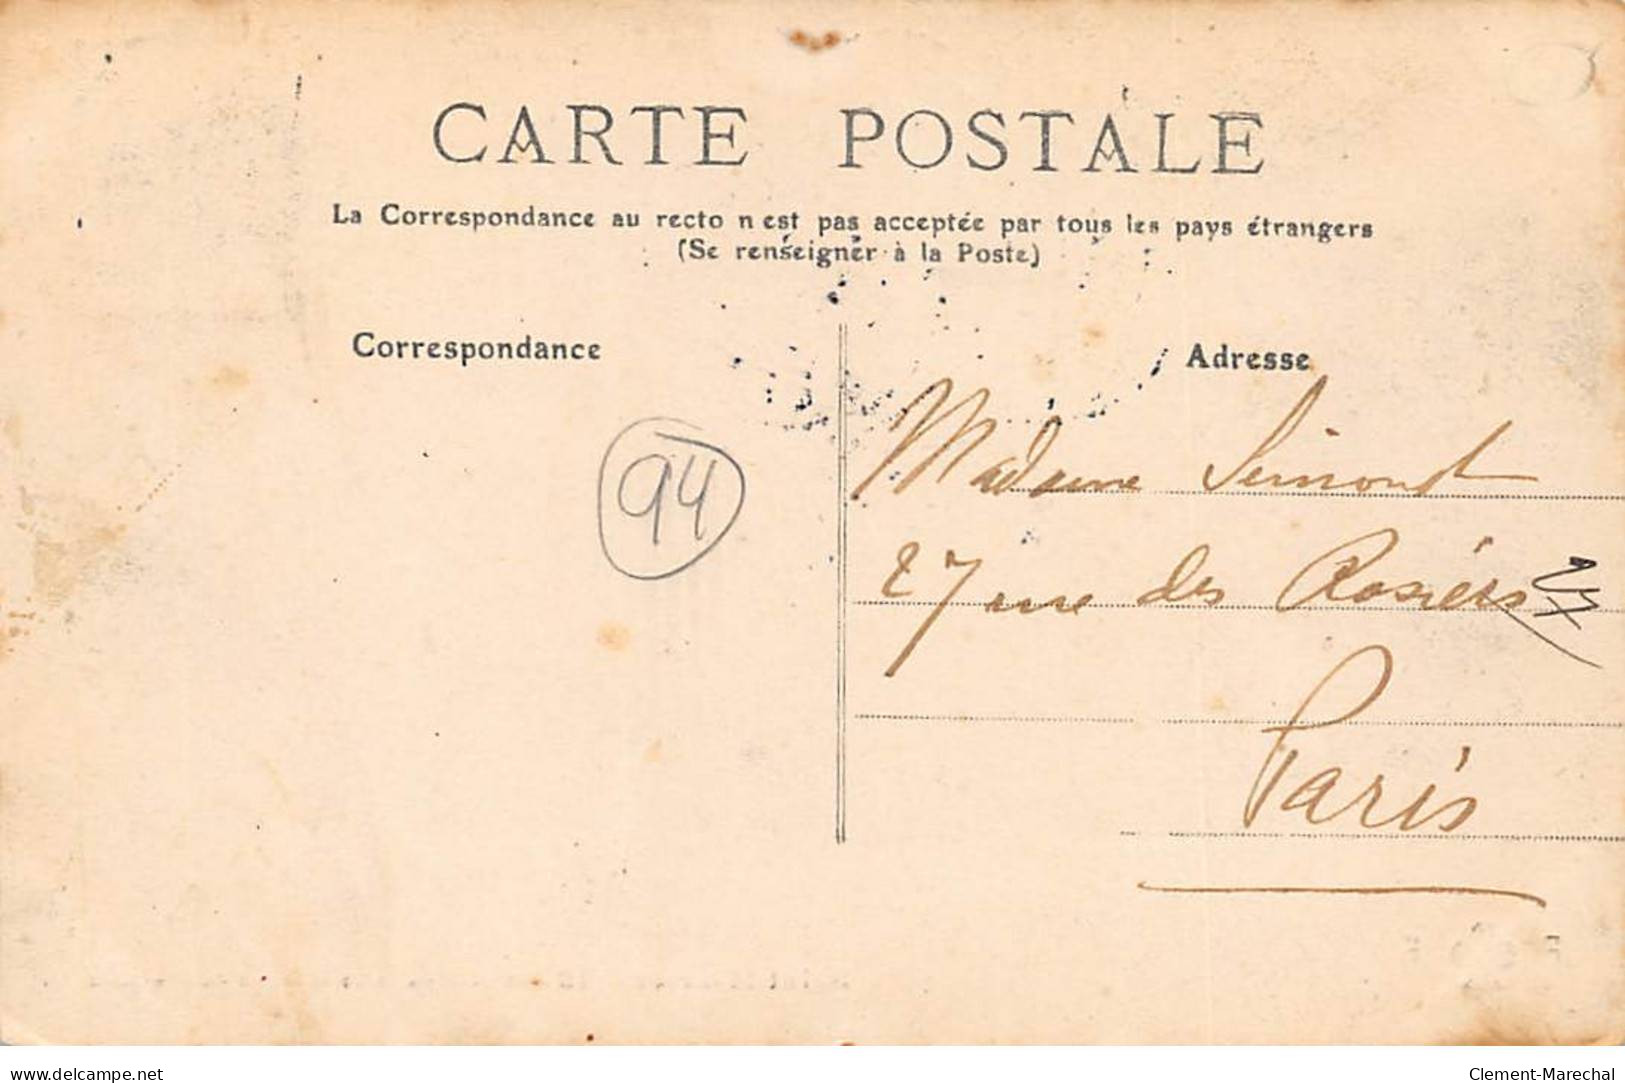 CARTE POSTALE
La Correspondance au recto n'est pas acceptée par tous les pays étrangers
(Se renseigner à la Poste)
Correspondance
Adresse
94
Madame Simont
27 rue des Rosiers
Paris
delcampe.net
Clement-Marechal